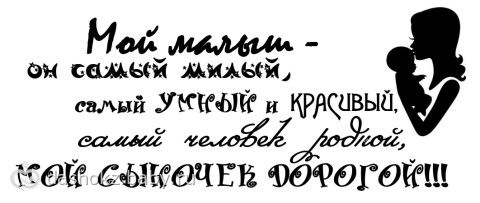 Мой малыш -
он самый милый,
самый УМНЫЙ и КРАСИВЫЙ,
самый человек родной,
МОЙ СЫНОЧЕК ДОРОГОЙ!!!